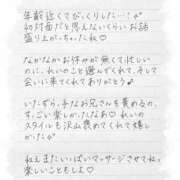 年齢近くてびっくりした…!💦
初対面だと思えないくらいお話
盛り上がっちゃったね♡
なかなかお休みが無くて忙しい
のに、れいのこと選んでくれて、そして
会いに来てくれてありがとう♪
いたずら上手なお兄さんを責めるの、
すっごい楽しかったなあ♡ れいの
スタイルも沢山褒めてくれて嬉し
かった♡
私もまたいっぱいマッサージさせてね♡
楽しいこともしよ♡